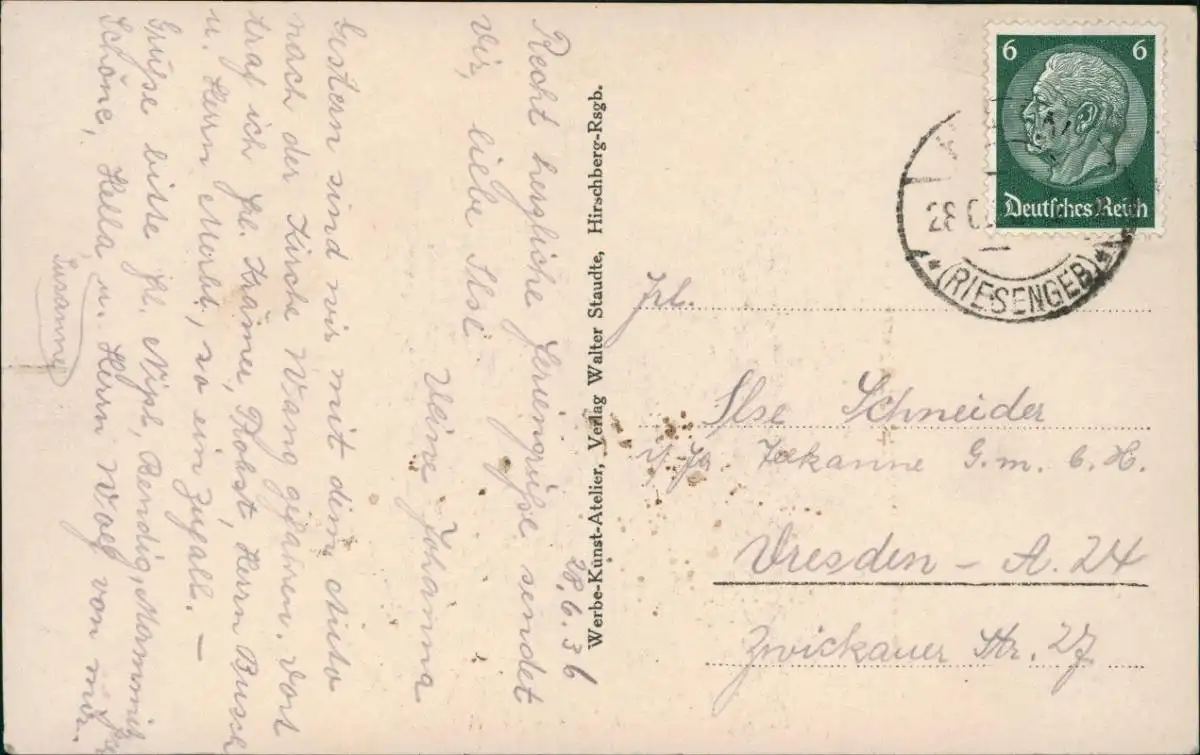 28.6.36
Recht herzliche Feriengrüße sendet
Dir, liebe Ilse
Deine Johanna
Gestern sind wir mit dem Auto
nach der Kirche Wang gefahren. Dort
traf ich Frl. Kramer, Probst, Herrn Busch
u. Herrn Morbt, so ein Zufall. –
Grüße bitte Frl. Nipl, Rendig, Mommnitz
Schöne, Hella u. Herrn Wolf von mir.
Susanne
Werbe-Kunst-Atelier, Verlag Walter Staudte, Hirschberg-Rsgb.
6 6
Deutsches Reich
28
(RIESENGEB)
Frl.
Ilse Schneider
Teekanne G.m.b.H.
Dresden – A. 24
Zwickauer Str. 27